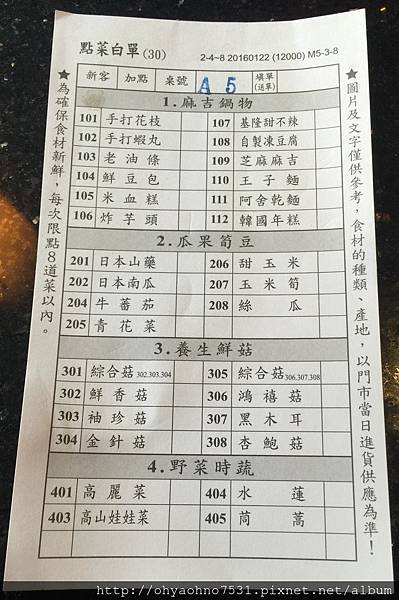 點菜白單(30)
2-4~8 20160122 (12000) M5-3-8
新客 加點 桌號 A 5 填單(送單)
★為確保食材新鮮，每次限點8道菜以內。
1.麻吉鍋物
101 手打花枝 107 基隆甜不辣
102 手打蝦丸 108 自製凍豆腐
103 老油條 109 芝麻麻吉
104 鮮豆包 110 王子麵
105 米血糕 111 阿舍乾麵
106 炸芋頭 112 韓國年糕
2.瓜果筍豆
201 日本山藥 206 甜玉米
202 日本南瓜 207 玉米筍
204 牛蕃茄 208 絲瓜
205 青花菜
3.養生鮮菇
301 綜合菇302.303.304 305 綜合菇306.307.308
302 鮮香菇 306 鴻禧菇
303 袖珍菇 307 黑木耳
304 金針菇 308 杏鮑菇
4.野菜時蔬
401 高麗菜 404 水蓮
403 高山娃娃菜 405 茼蒿
★圖片及文字僅供參考，食材的種類、產地，以門市當日進貨供應為準！
http://ohyaohno7531.pixnet.net/album